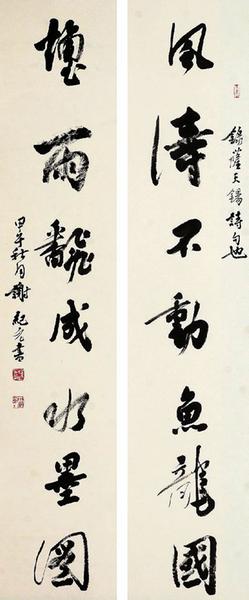 錄薩天錫詩句也
風濤不動魚龍國
煙雨飜成水墨圖
甲午秋月謝紀書